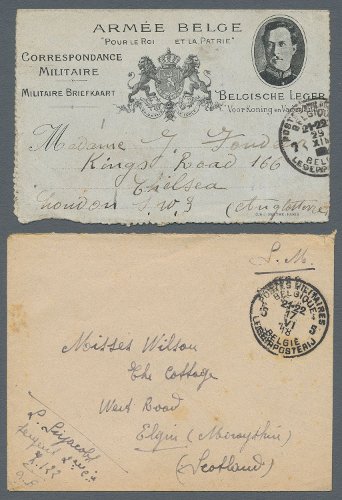 ARMÉE BELGE
"POUR LE ROI ET LA PATRIE"
CORRESPONDANCE
MILITAIRE
MILITAIRE BRIEFKAART
BELGISCHE LEGER
Voor Koning en Vaderland
POSTES
BELGIQUE
21-22
29
XII
BELGIE
LEGERPOSTERIJ
Madame J.
Kings Road 166
Chelsea
London S.W.3 (Angleterre)
S.M.
POSTES MILITAIRES
BELGIQUE
21-22
5 17 5
VI
18
BELGIË
LEGERPOSTERIJ
Misses Wilson
The Cottage
West Road
Elgin (Morayshin)
(Scotland)